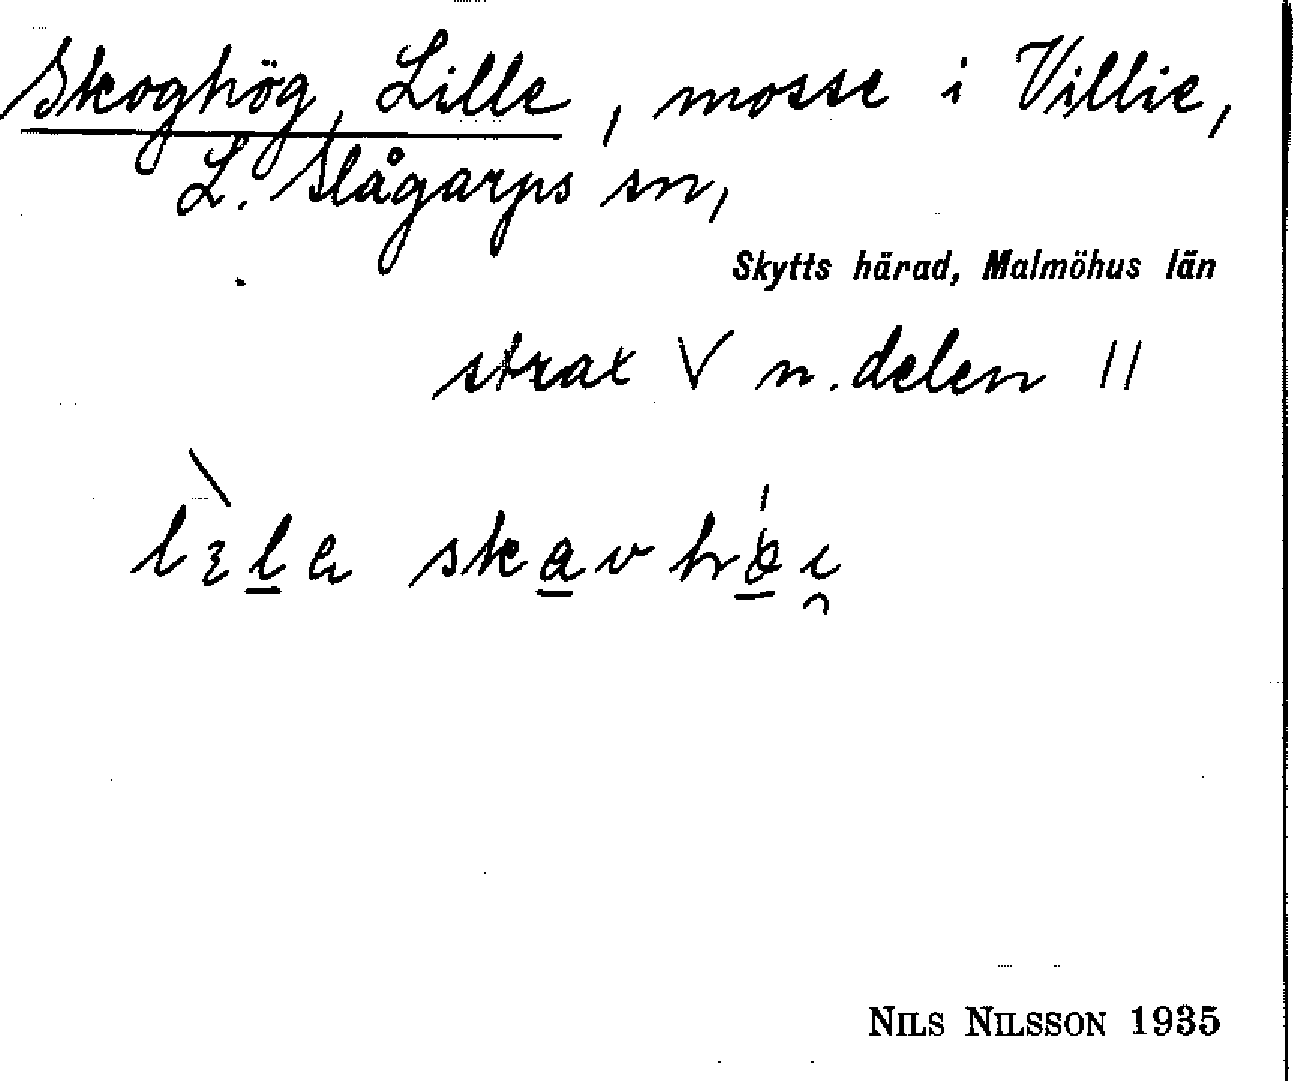 Skoghög, Lille, mosse i Villie,
L. Slågarps sn,
Skytts härad, Malmöhus län
strax V n. delen ||
skav
NILS NILSSON 1935